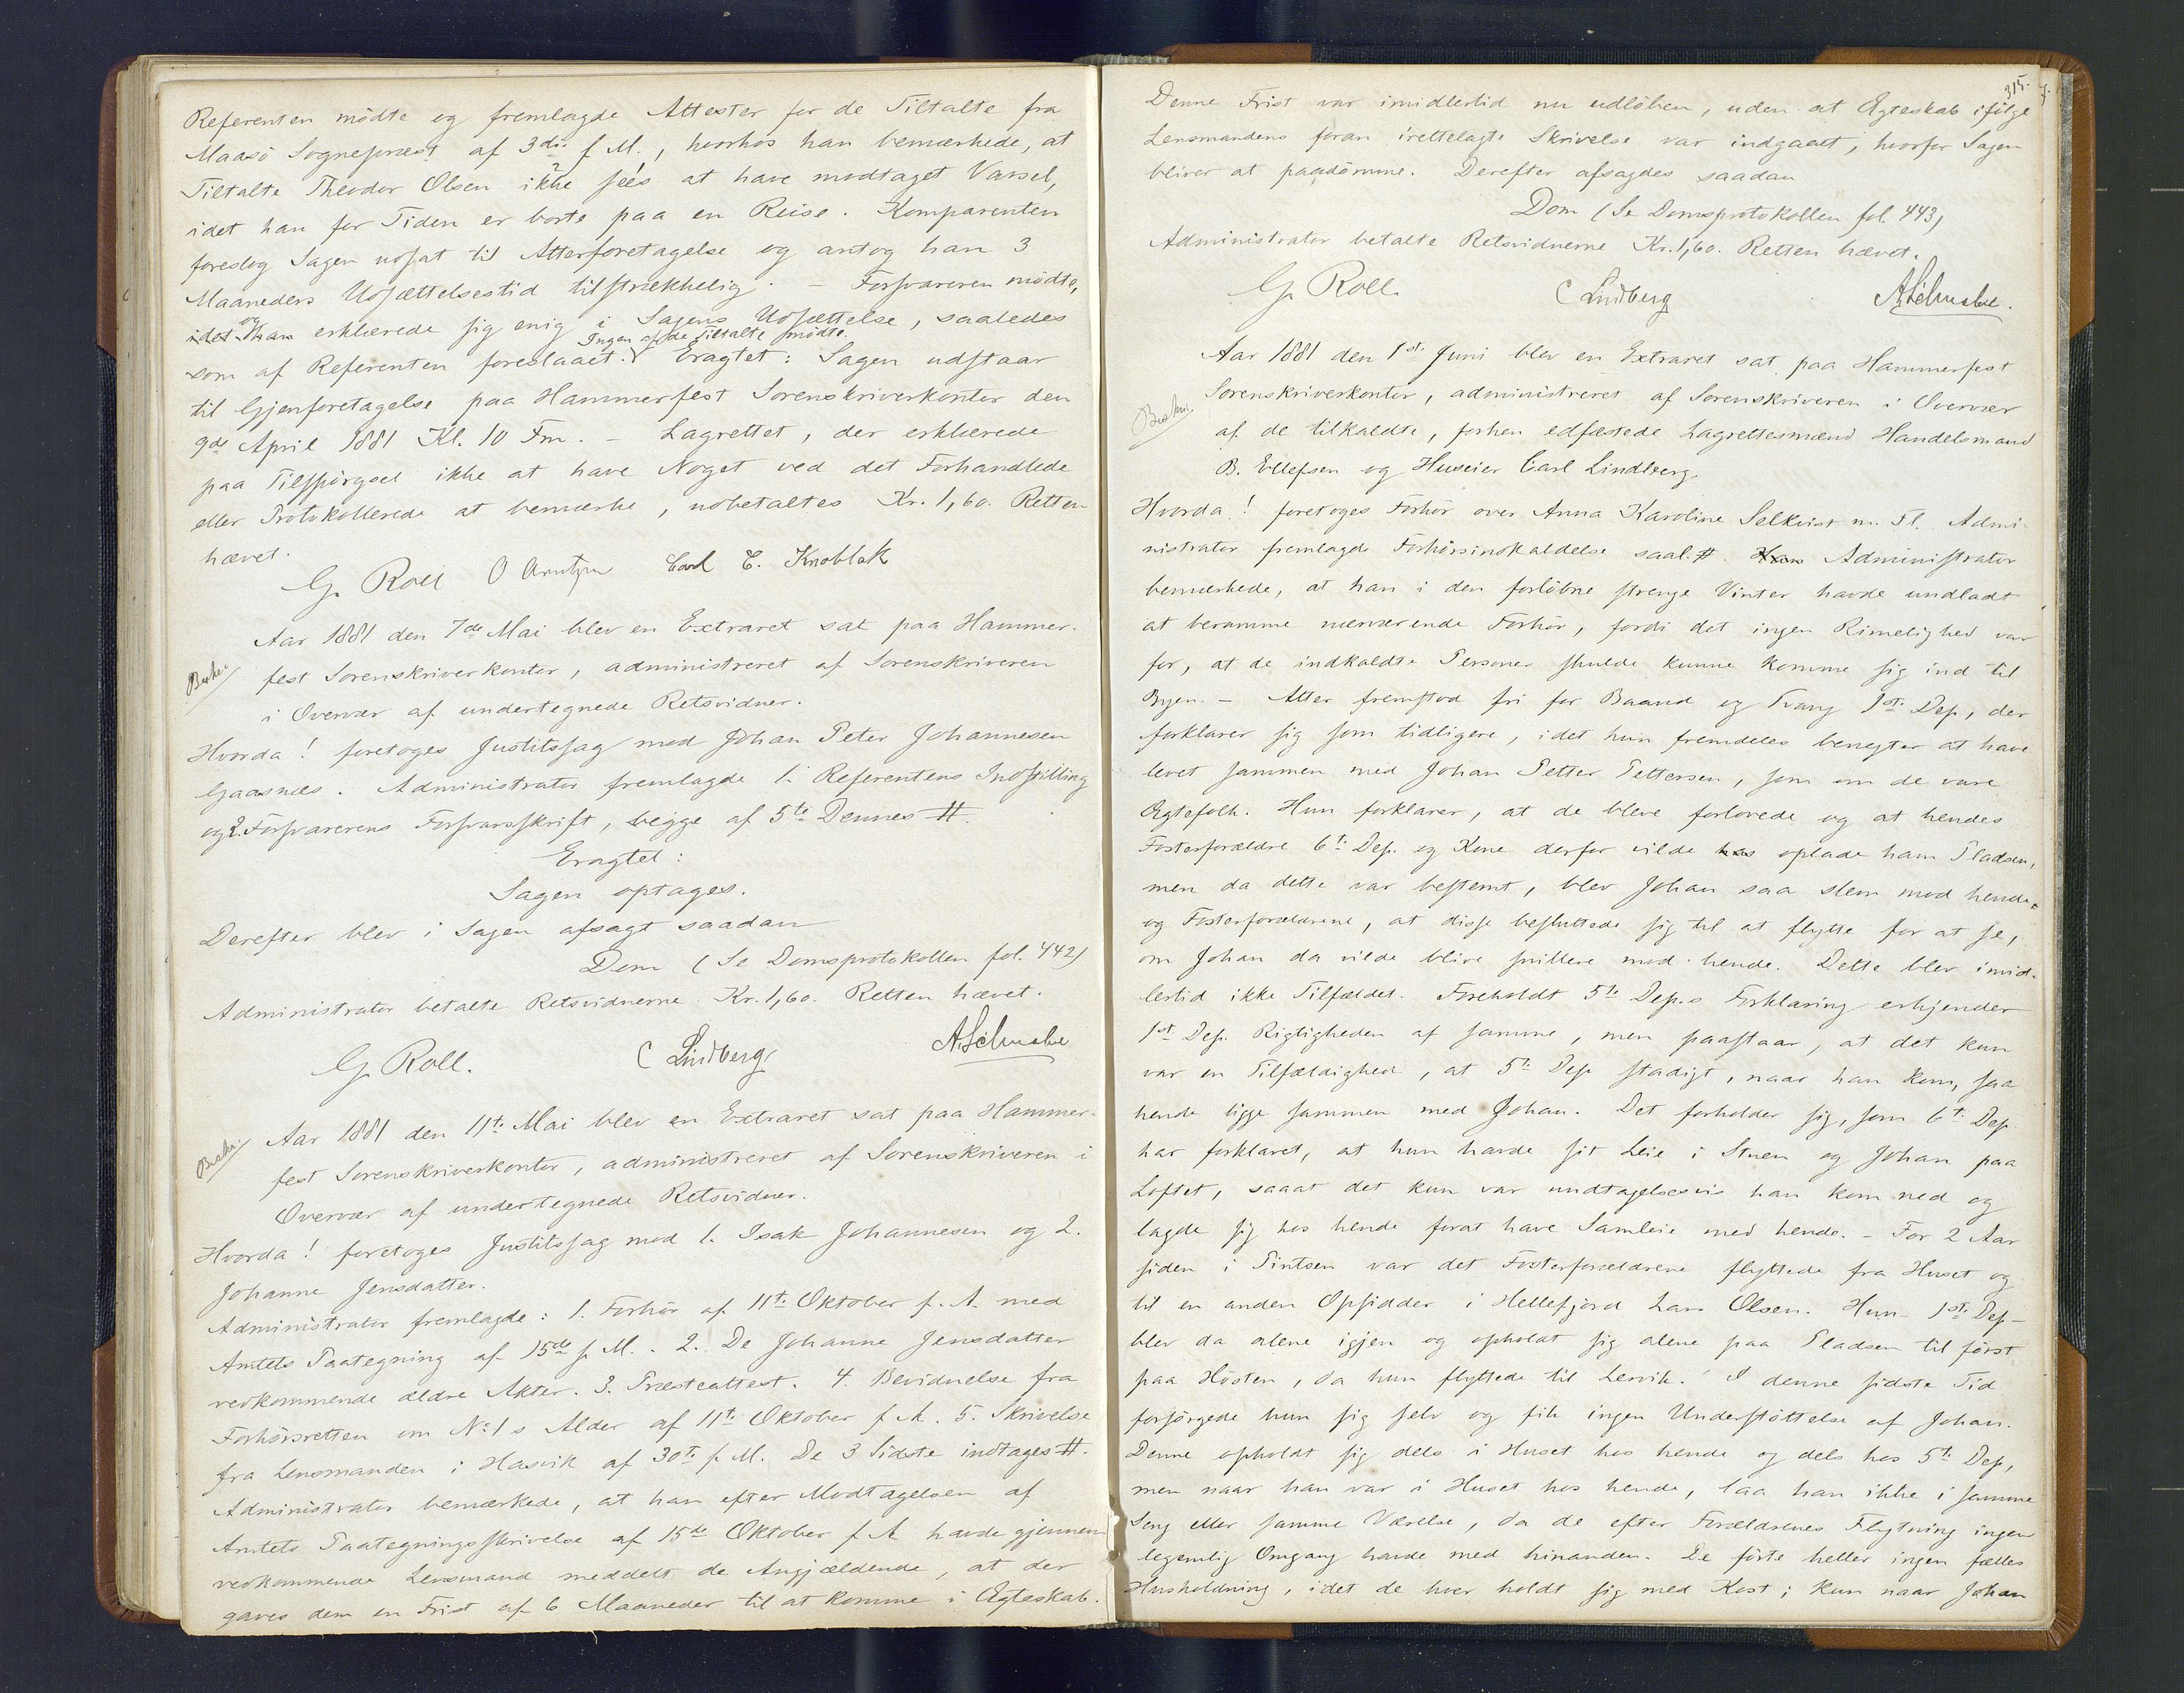 Referenten mödte og fremlagde Attester for de Tiltalte fra
Maasö Sognepræst af 3die f. M., hvorhos han bemærkede, at
Tiltalte Theodor Olsen ikke sees at have modtaget Varsel,
idet han for Tiden er borte paa en Reise. Komparenten
foreslog Sagen udsat til Atterforetagelse og antog han 3
Maaneders Udsættelsestid tilstrækkelig. – Forsvareren mödte,
idet og han erklærede sig enig i Sagens Udsættelse, saaledes
Ingen af de Tiltalte mödte.
som af Referenten foreslaaet. Eragtet: Sagen udstaar
til Gjenforetagelse paa Hammerfest Sorenskriverkontor den
9de April 1881 Kl. 10 Fm. – Lagrettet, der erklærede
paa Tilspörgsel ikke at have Noget ved det Forhandlede
eller Protokollerede at bemærke, udbetaltes Kr. 1,60. Retten
hævet.
G. Roll O Arntzen Carl E. Knoblok
Aar 1881 den 7de Mai blev en Extraret sat paa Hammer-
fest Sorenskriverkontor, administreret af Sorenskriveren
i Overvær af undertegnede Retsvidner.
Hvorda! foretoges Justitssag mod Johan Peter Johannesen
Gaasnæs. Administrator fremlagde 1. Referentens Indstilling
og 2. Forsvarerens Forsvarsskrift, begge af 5te Dennes #.
Eragtet:
Sagen optages.
Derefter blev i Sagen afsagt saadan
Dom (Se Domsprotokollen fol. 442)
Administrator betalte Retsvidnerne Kr. 1,60. Retten hævet.
G. Roll. C Lindberg A. Schwabe
Aar 1881 den 11te Mai blev en Extraret sat paa Hammer-
fest Sorenskriverkontor, administreret af Sorenskriveren i
Overvær af undertegnede Retsvidner.
Hvorda! foretoges Justitssag mod 1. Isak Johannesen og 2.
Johanne Jensdatter.
Administrator fremlagde: 1. Forhör af 11te Oktober f. A. med
Amtets Paategning af 15de f. M. 2. De Johanne Jensdatter
vedkommende ældre Akter. 3. Præsteattest. 4. Bevidnelse fra
Forhörsretten om No 1s Alder af 11te Oktober f A. 5. Skrivelse
fra Lensmanden i Hasvik af 30te f. M. De 3 Sidste indtages #.
Administrator bemærkede, at han efter Modtagelsen af
Amtets Paategningsskrivelse af 15de Oktober f. A havde gjennem
vedkommende Lensmand meddelt de Angjældende, at der
gaves dem en Frist af 6 Maaneder til at komme i Ægteskab.
315.
Denne Frist var imidlertid nu udlöben, uden at Ægteskab ifölge
Lensmandens foran irettelagte Skrivelse var indgaaet, hvorfor Sagen
bliver at paadömme. Derefter afsagdes saadan
Dom (Se Domsprotokollen fol. 443)
Administrator betalte Retsvidnerne Kr. 1,60. Retten hævet.
G. Roll. C Lindberg A. Schwabe.
Aar 1881 den 1st Juni blev en Extraret sat paa Hammerfest
Sorenskriverkontor, administreret af Sorenskriveren i Overvær
af de tilkaldte, forhen edfæstede Lagrettesmænd Handelsmand
B. Ellefsen og Huseier Carl Lindberg.
Hvorda! foretoges Forhör over Anna Karoline Selkvist m. Fl. Admi-
nistrator fremlagde Forhörsindkaldelse saal. #. Han Administrator
bemærkede, at han i den forlöbne strenge Vinter havde undladt
at beramme nærværende Forhör, fordi det ingen Rimelighed var
for, at de indkaldte Personer skulde kunne komme sig ind til
Byen. – Atter fremstod fri for Baand og Tvang 1ste Dep, der
forklarer sig som tidligere, idet hun fremdeles benegter at have
levet sammen med Johan Petter Pettersen, som om de vare
Ægtefolk. Hun forklarer, at de bleve forlovede og at hendes
Fosterforældre 6te Dep. og Kone derfor vilde has oplade ham Pladsen,
men da dette var bestemt, blev Johan saa slem mod hende
og Fosterforældrene, at disse besluttede sig til at flytte for at se,
om Johan da vilde blive snillere mod hende. Dette blev imid-
lertid ikke Tilfældet. Foreholdt 5te Dep.s Forklaring erkjender
1st Dep. Rigtigheden af samme, men paastaar, at det kun
var en Tilfældighed, at 5te Dep stadigt, naar han kom, saa
hende ligge sammen med Johan. Det forholder sig, som 6te Dep.
har forklaret, at hun havde sit Leie i Stuen og Johan paa
Loftet, saaat det kun var undtagelsesvis han kom ned og
lagde sig hos hende forat have Samleie med hende. – For 2 Aar
siden i Pintsen var det Fosterforældrene flyttede fra Huset og
til en anden Opsidder i Hellefjord Lars Olsen. Hun – 1ste Dep –
blev da alene igjen og opholdt sig alene paa Pladsen til först
paa Hösten, da hun flyttede til Lervik. I denne sidste Tid
forsörgede hun sig selv og fik ingen Understöttelse af Johan.
Denne opholdt sig dels i Huset hos hende og dels hos 5te Dep,
men naar han var i Huset hos hende, laa han ikke i samme
Seng eller samme Værelse, da de efter Forældrenes Flytning ingen
legemlig Omgang havde med hinanden. De förte heller ingen fælles
Husholdning, idet de hver holdt sig med Kost; kun naar Johan